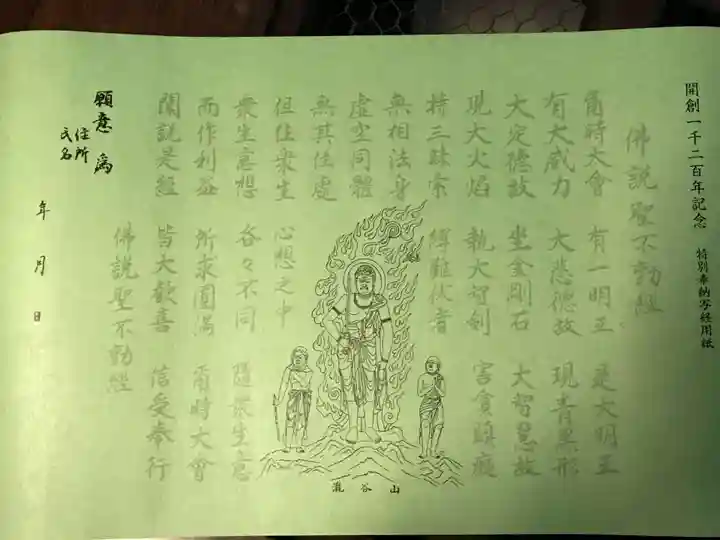 開創一千二百年記念 特別奉納写経用紙
佛説聖不動経
爾時大會 有一明王 是大明王
有大威力 大悲徳故 現青黒形
大定徳故 坐金剛石 大智慧故
現大火焔 執大智剣 害貪瞋癡
持三昧索 縛難伏者
無相法身
虚空同體
無其住處
但住衆生 心想之中
衆生意想 各々不同 隨衆生意
而作利益 所求圓満 爾時大會
聞説是経 皆大歓喜 信受奉行
佛説聖不動経
願意 為
住所
氏名
年 月 日
瀧谷山